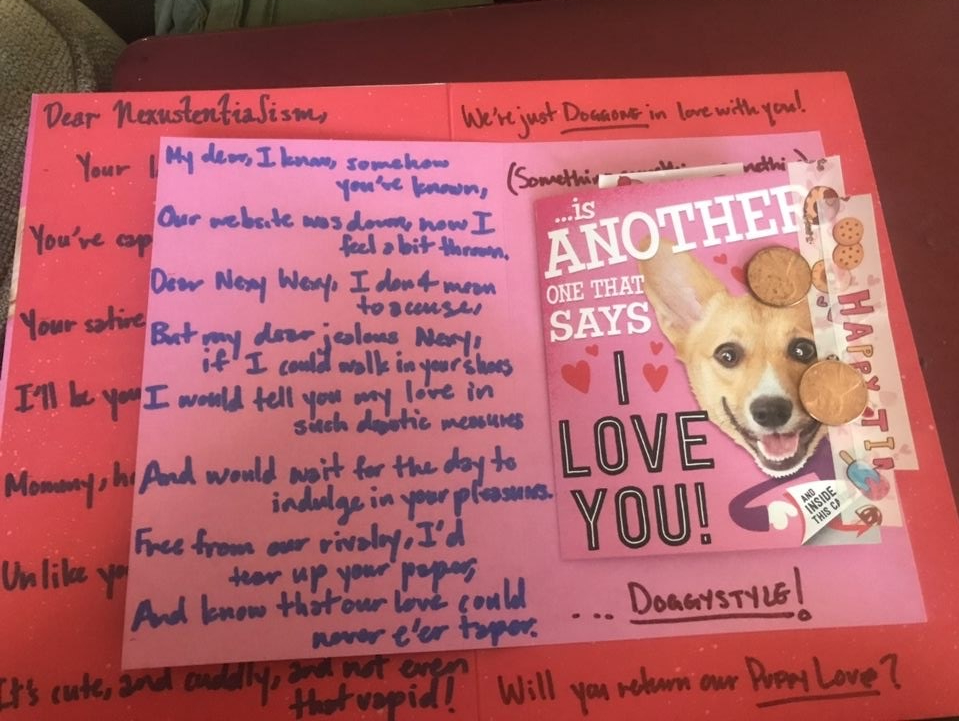 Dear Nexustentialism,
Your
You've cap
Your satire
I'll be you
Mommy, h
Unlike yo
It's cute, and cuddly, and not even
that vapid!
My dear, I know, somehow
you've known,
Our website was down, now I
feel a bit thrown.
Dear Nexy Wexy, I don't mean
to accuse,
But my dear jealous Nexy,
if I could walk in your shoes
I would tell you my love in
such despotic measures
And would wait for the day to
indulge in your pleasures.
Free from our rivalry, I'd
tear up your paper,
And know that our love could
never e'er taper.
We're just DOGGONE in love with you!
(Somethin
...is
ANOTHER
ONE THAT
SAYS
I
LOVE
YOU!
AND
INSIDE
THIS CA
HAPPY
... DOGGYSTYLE!
Will you return our PUPPY LOVE?